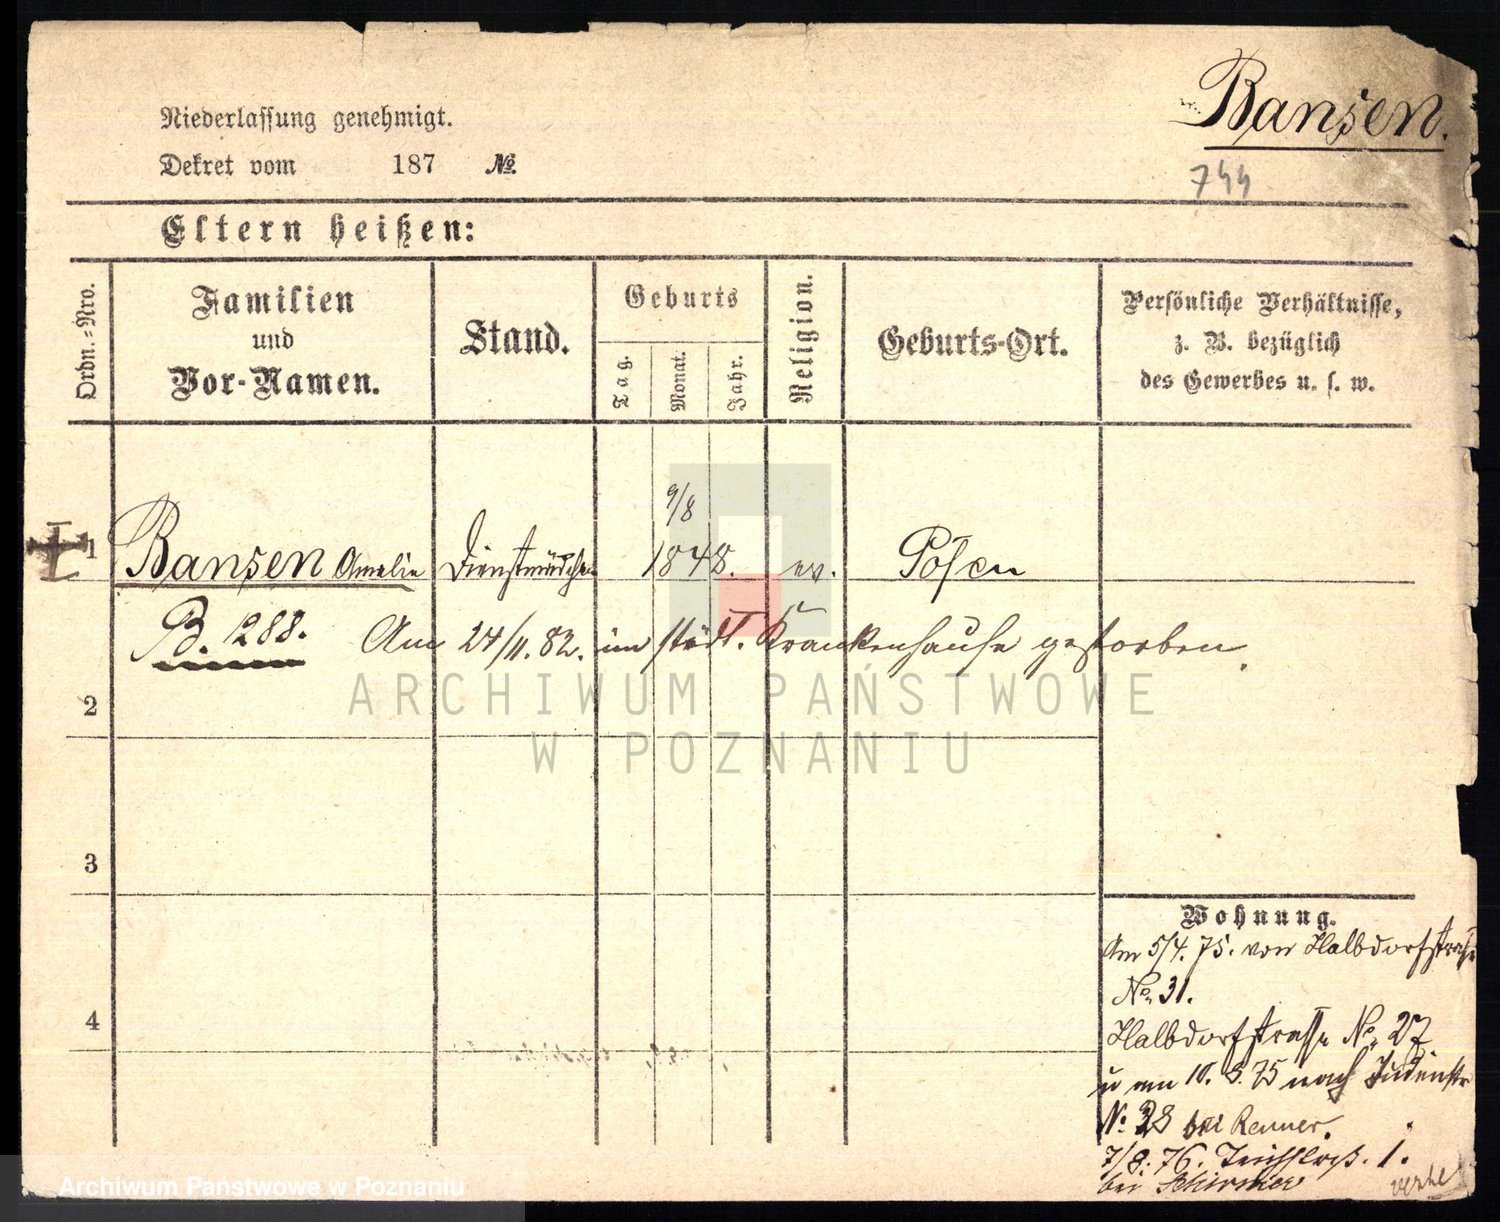 Bansen.
Niederlassung genehmigt.
Dekret vom 187 №
744
Eltern heißen:
Ordn.-Nro.
Familien
und
Vor-Namen.
Stand.
Geburts
Tag.
Monat.
Jahr.
Religion.
Geburts-Ort.
Persönliche Verhältnisse,
z. B. bezüglich
des Gewerbes u. s. w.
9/8
1 Bansen Amalie Dienstmädchen 1848. ev. Posen
B. 1288. Am 24/11. 82. im städt. Krankenhause gestorben.
2
3
4
Wohnung.
Am 5/4. 75. von Halbdorfstraße
No. 31.
Halbdorfstrasse No. 27
u am 10. 8. 75 nach Judenstr
No. 28 bei Renner.
7/8. 76. 1.
bei Schirmer
ARCHIWUM PAŃSTWOWE
W POZNANIU
Archiwum Państwowe w Poznaniu